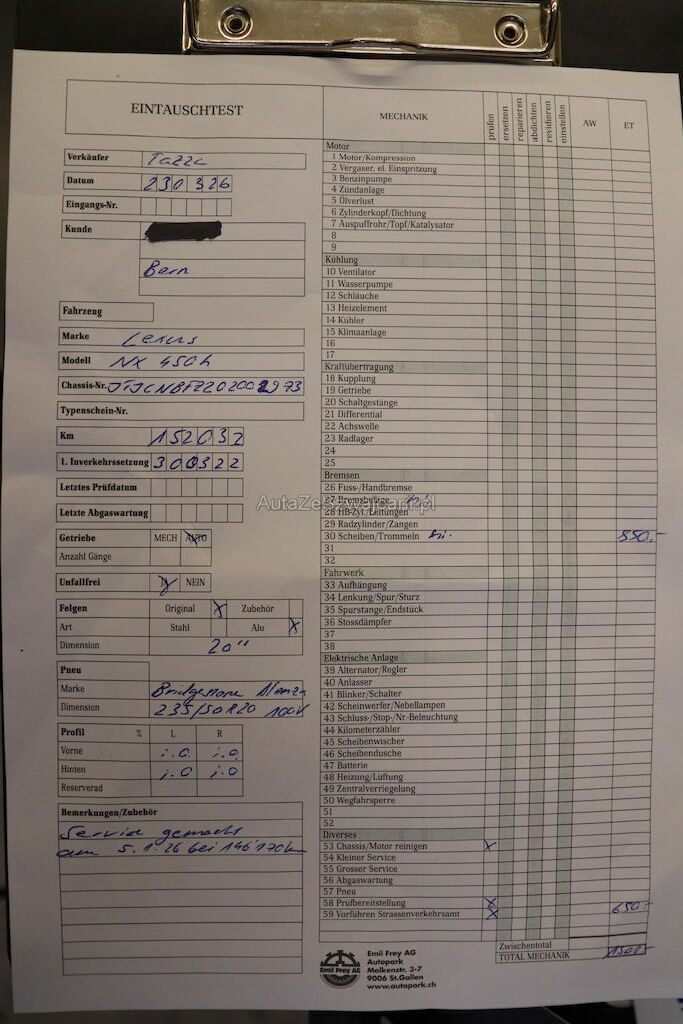 EINTAUSCHTEST
Verkäufer
Datum 230326
Eingangs-Nr.
Kunde
Bern
Fahrzeug
Marke Lexus
Modell NX 450h
Chassis-Nr.
Typenschein-Nr.
Km 152032
1. Inverkehrssetzung 300322
Letztes Prüfdatum
Letzte Abgaswartung
Getriebe MECH AUTO
Anzahl Gänge
Unfallfrei JA NEIN
Felgen Original X Zubehör
Art Stahl Alu X
Dimension 20"
Pneu
Marke Bridgestone Alenza
Dimension 235/50R20 100V
Profil % L R
Vorne i.O. i.O.
Hinten i.O i.O
Reserverad
Bemerkungen/Zubehör
Service gemacht
am 5.1.26 bei 146'170km
MECHANIK prüfen ersetzen reparieren abdichten revidieren einstellen AW ET
Motor
1 Motor/Kompression
2 Vergaser, el. Einspritzung
3 Benzinpumpe
4 Zündanlage
5 Ölverlust
6 Zylinderkopf/Dichtung
7 Auspuffrohr/Topf/Katalysator
8
9
Kühlung
10 Ventilator
11 Wasserpumpe
12 Schläuche
13 Heizelement
14 Kühler
15 Klimaanlage
16
17
Kraftübertragung
18 Kupplung
19 Getriebe
20 Schaltgestänge
21 Differential
22 Achswelle
23 Radlager
24
25
Bremsen
26 Fuss-/Handbremse
27 Bremsbeläge
28 HB-Zyl./Leitungen
29 Radzylinder/Zangen
30 Scheiben/Trommeln hi. 850.-
31
32
Fahrwerk
33 Aufhängung
34 Lenkung/Spur/Sturz
35 Spurstange/Endstück
36 Stossdämpfer
37
38
Elektrische Anlage
39 Alternator/Regler
40 Anlasser
41 Blinker/Schalter
42 Scheinwerfer/Nebellampen
43 Schluss-/Stop-/Nr.-Beleuchtung
44 Kilometerzähler
45 Scheibenwischer
46 Scheibendusche
47 Batterie
48 Heizung/Lüftung
49 Zentralverriegelung
50 Wegfahrsperre
51
52
Diverses
53 Chassis/Motor reinigen X
54 Kleiner Service
55 Grosser Service
56 Abgaswartung
57 Pneu
58 Prüfbereitstellung X
59 Vorführen Strassenverkehrsamt X 650.-
Zwischentotal
TOTAL MECHANIK 1500.-
Emil Frey AG
Emil Frey AG
Autopark
Molkenstr. 3-7
9006 St.Gallen
www.autopark.ch
AutaZeSzwajcarii.pl